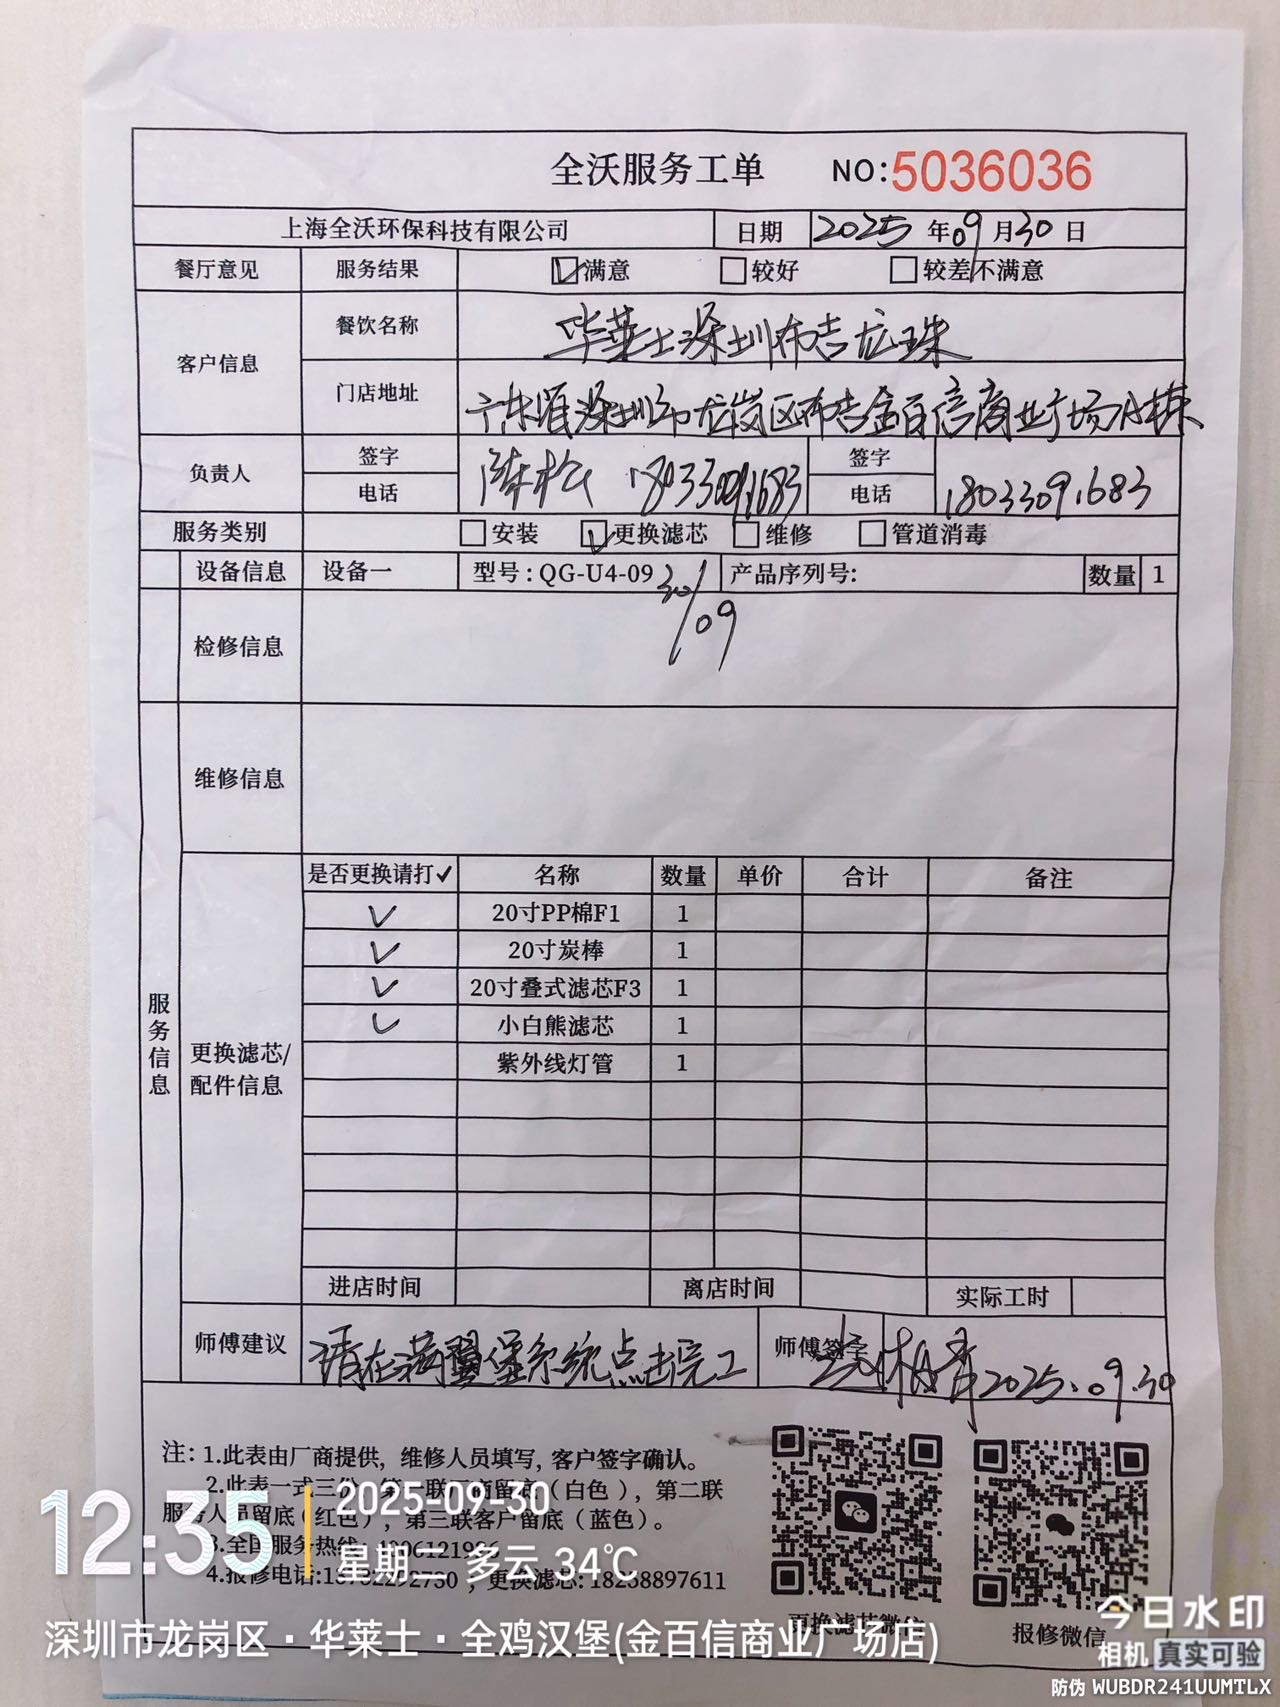 全沃服务工单 NO:5036036
上海全沃环保科技有限公司 日期 2025 年 09 月 30 日
餐厅意见 服务结果 满意 较好 较差不满意
客户信息 餐饮名称 华莱士深圳布吉龙珠
门店地址 广东省深圳市龙岗区布吉金百信商业广场A栋
负责人 签字 陈松 签字
电话 18033091683 电话 18033091683
服务类别 安装 更换滤芯 维修 管道消毒
设备信息 设备一 型号:QG-U4-09 产品序列号: 数量 1
30/09
检修信息
维修信息
服务信息
更换滤芯/
配件信息
是否更换请打✓ 名称 数量 单价 合计 备注
✓ 20寸PP棉F1 1
✓ 20寸炭棒 1
✓ 20寸叠式滤芯F3 1
✓ 小白熊滤芯 1
紫外线灯管 1
进店时间 离店时间 实际工时
师傅建议 请在满翼堡系统点击完工 师傅签字 2025.09.30
注:1.此表由厂商提供,维修人员填写,客户签字确认。
2.此表一式三份,第一联厂商留底(白色),第二联
服务人员留底(红色),第三联客户留底(蓝色)。
3.全国服务热线
4.报修电话: ,更换滤芯:18238897611
更换滤芯微信 报修微信
12:35 2025-09-30
星期二 多云 34℃
深圳市龙岗区·华莱士·全鸡汉堡(金百信商业广场店)
今日水印
相机 真实可验
防伪 WUBDR241UUMTLX